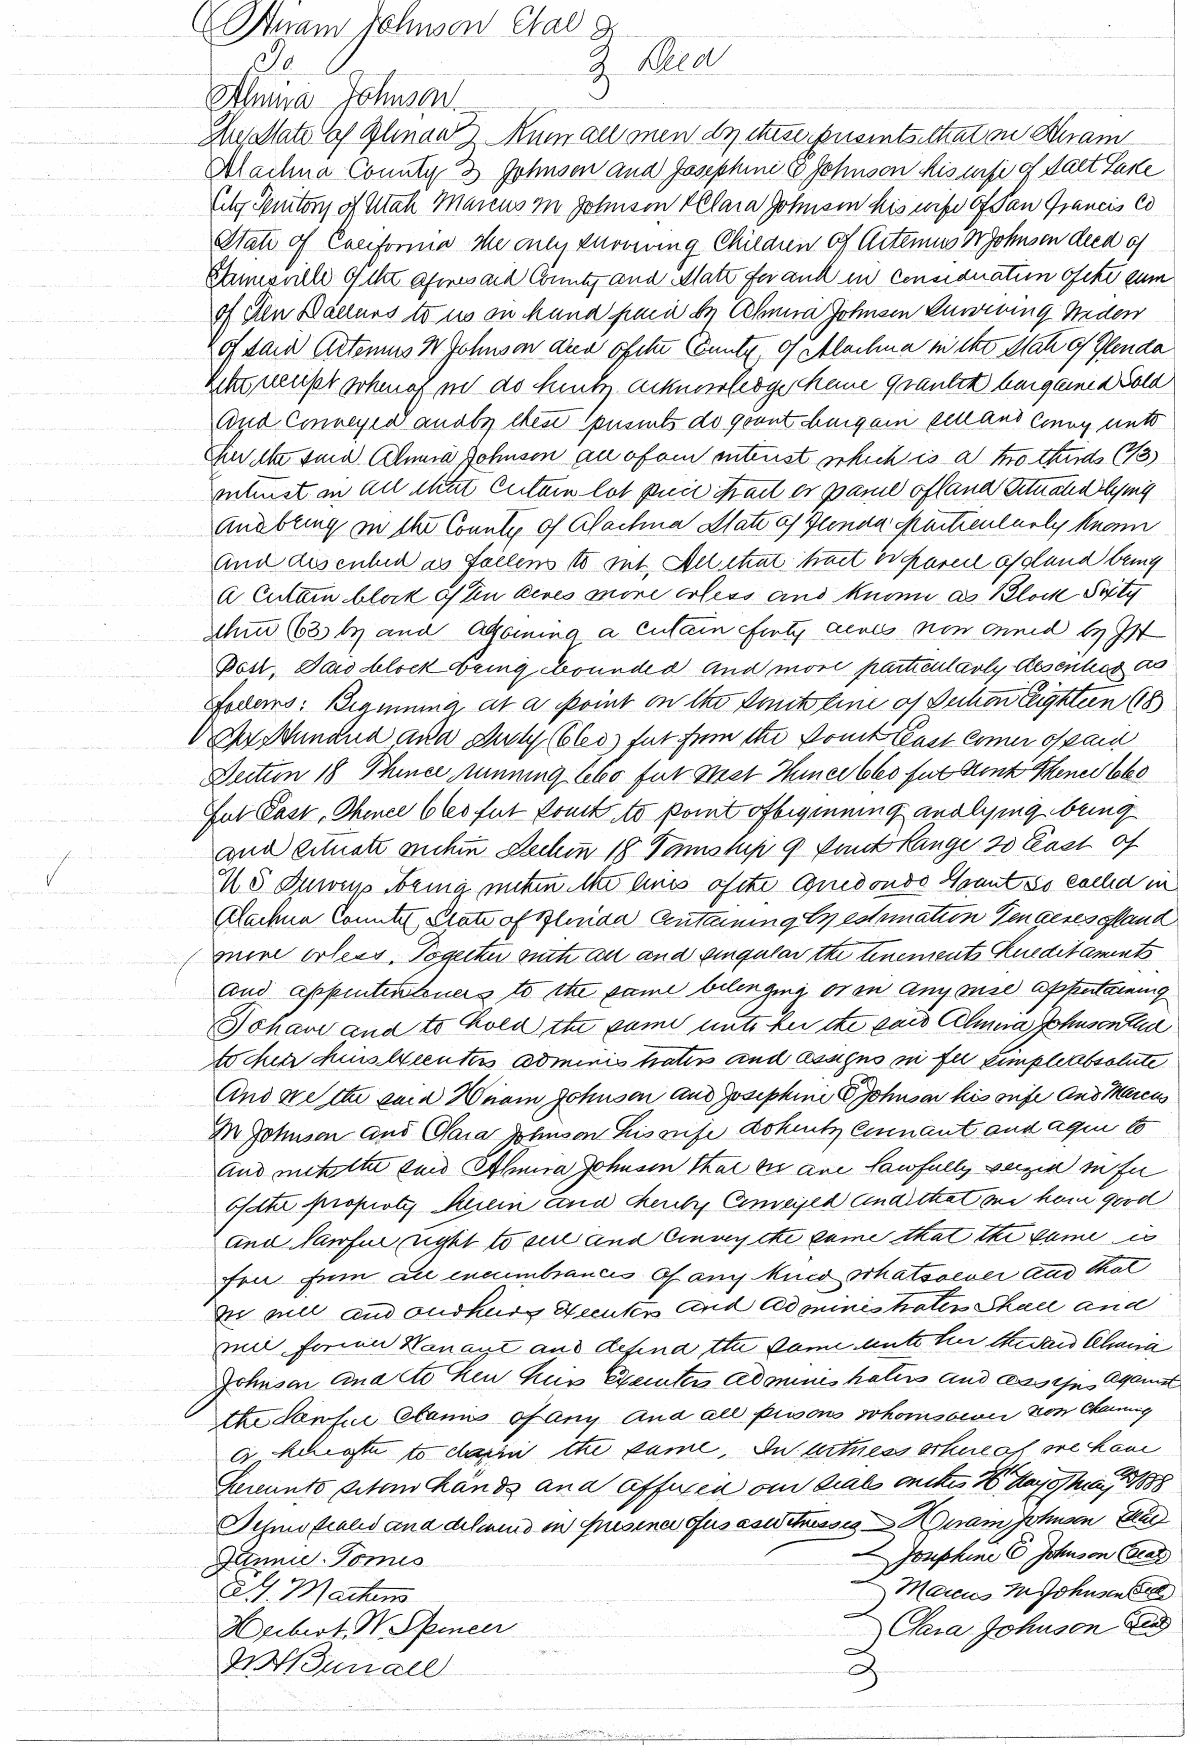 Hiram Johnson Etal
To Deed
Almira Johnson
The State of Florida Know all men by these presents that we Hiram
Alachua County Johnson and Josephine E Johnson his wife of Salt Lake
City Territory of Utah Marcus M Johnson & Clara Johnson his wife of San Francis Co
State of California the only surviving Children of Artemus W Johnson decd of
Gainesville of the aforesaid County and State for and in consideration of the sum
of Ten Dollars to us in hand paid by Almira Johnson Surviving Widow
of said Artemus W Johnson decd of the County of Alachua in the State of Florida
the receipt whereof we do hereby acknowledge have granted bargained Sold
and Conveyed and by these presents do grant bargain sell and convey unto
her the said Almira Johnson all of our interest which is a two thirds (2/3)
interest in all that certain lot piece tract or parcel of land Situated lying
and being in the County of Alachua State of Florida particularly known
and described as follows to wit, All that tract or parcel of land being
a Certain block of Ten acres more or less and known as Block Sixty
three (63) by and adjoining a certain forty acres now owned by J H
Post, Said block being bounded and more particularly described as
follows: Beginning at a point on the South line of Section Eighteen (18)
Six Hundred and Sixty (660) feet from the South East Corner of said
Section 18 Thence running 660 feet West Thence 660 feet North Thence 660
feet East, Thence 660 feet South to point of beginning and lying being
and situate within Section 18 Township 9 South Range 20 East of
U S Surveys being within the lines of the Arredondo Grant So called in
Alachua County State of Florida Containing by estimation Ten acres of land
more or less. Together with all and singular the tenements hereditaments
and appurtenances to the same belonging or in any wise appertaining
To have and to hold the same unto her the said Almira Johnson and
to her heirs Executors administrators and assigns in fee simple absolute
And we the said Hiram Johnson and Josephine E Johnson his wife and Marcus
M Johnson and Clara Johnson his wife do hereby covenant and agree to
and with the said Almira Johnson that we are lawfully seized in fee
of the property herein and hereby Conveyed and that we have good
and lawful right to sell and Convey the same that the same is
free from all encumbrances of any kind whatsoever and that
we will and our heirs Executors and administrators Shall and
will forever Warrant and defend the same unto her the said Almira
Johnson and to her heirs Executors administrators and assigns against
the Lawful Claims of any and all persons whomsoever now claiming
or hereafter to claim the same. In witness whereof we have
hereunto set our hands and affixed our seals on this day of May AD 1888
Signed sealed and delivered in presence of us as witnesses Hiram Johnson Seal
Jannie Tomes Josephine E Johnson Seal
Marcus M Johnson Seal
Herbert W Spencer Clara Johnson Seal
W H Burrall